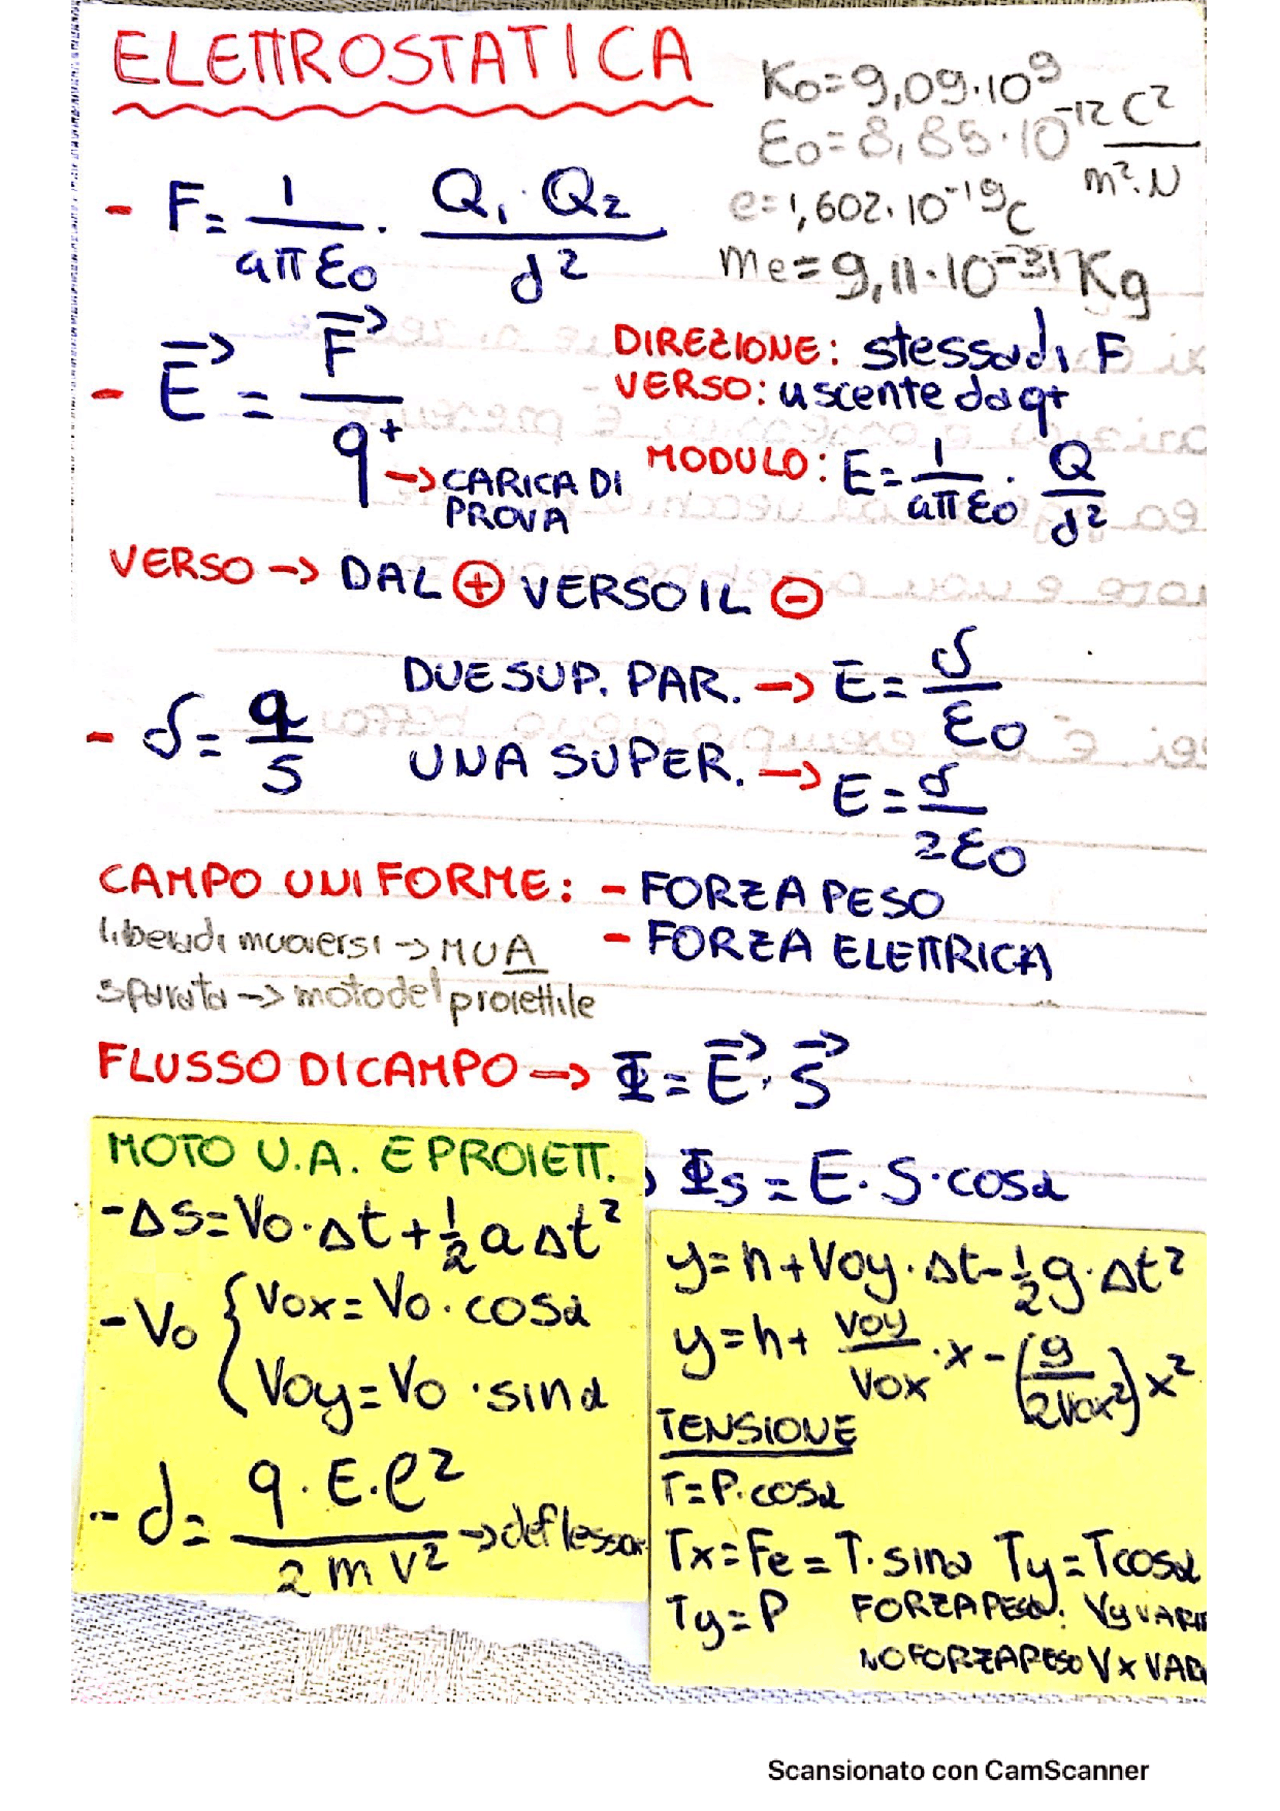 ELETTROSTATICA
K0=9,09·10^9
ε0=8,85·10^-12 C^2/m^2·N
e=1,602·10^-19 C
me=9,11·10^-31 Kg
- F= 1/4πε0 · Q1·Q2/d^2
- E⃗ = F⃗/q+
→ CARICA DI PROVA
DIREZIONE: stessa di F
VERSO: uscente da q+
MODULO: E= 1/4πε0 · Q/d^2
VERSO → DAL ⊕ VERSO IL ⊖
- δ= q/S
DUE SUP. PAR. → E= δ/ε0
UNA SUPER. → E= δ/2ε0
CAMPO UNIFORME: - FORZA PESO
- FORZA ELETTRICA
libera di muoversi → MUA
sparata → moto del proiettile
FLUSSO DI CAMPO → Φ = E⃗·S⃗
Φs = E·S·cosα
MOTO U.A. E PROIETT.
- Δs=V0·Δt+½aΔt²
- V0 { V0x=V0·cosα
V0y=V0·sinα
- d= q·E·l²/2mv² → deflessor
y=h+V0y·Δt-½g·Δt²
y=h+ V0y/V0x ·x-(g/2V0x²)x²
TENSIONE
T=P·cosα
Tx=Fe=T·sinα Ty=Tcosα
Ty=P
FORZA PESO: Vy VARI
NO FORZA PESO Vx VAR
Scansionato con CamScanner